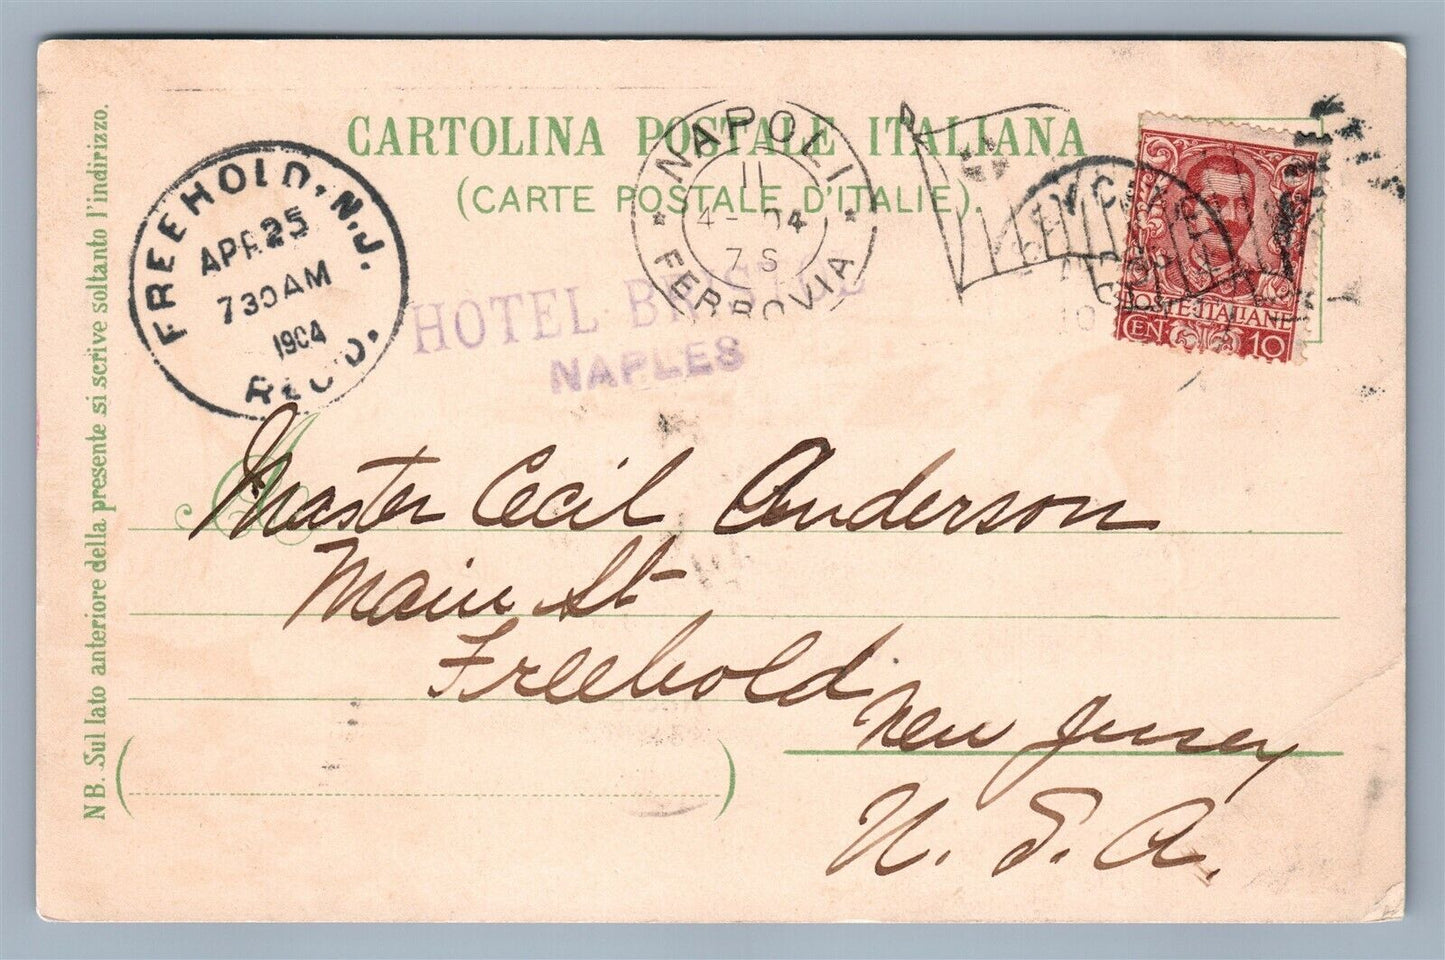 CARTOLINA POSTALE ITALIANA
(CARTE POSTALE D'ITALIE).
FREEHOLD, N.J.
APR 25
730 AM
1904
REC'D.
NAPOLI
11
4-04
7 S
FERROVIA
HOTEL BRISTOL
NAPLES
POSTE ITALIANE
CEN 10
Master Cecil Anderson
Main St
Freehold
New Jersey
U. S. A.
NB. Sul lato anteriore della presente si scrive soltanto l'indirizzo.